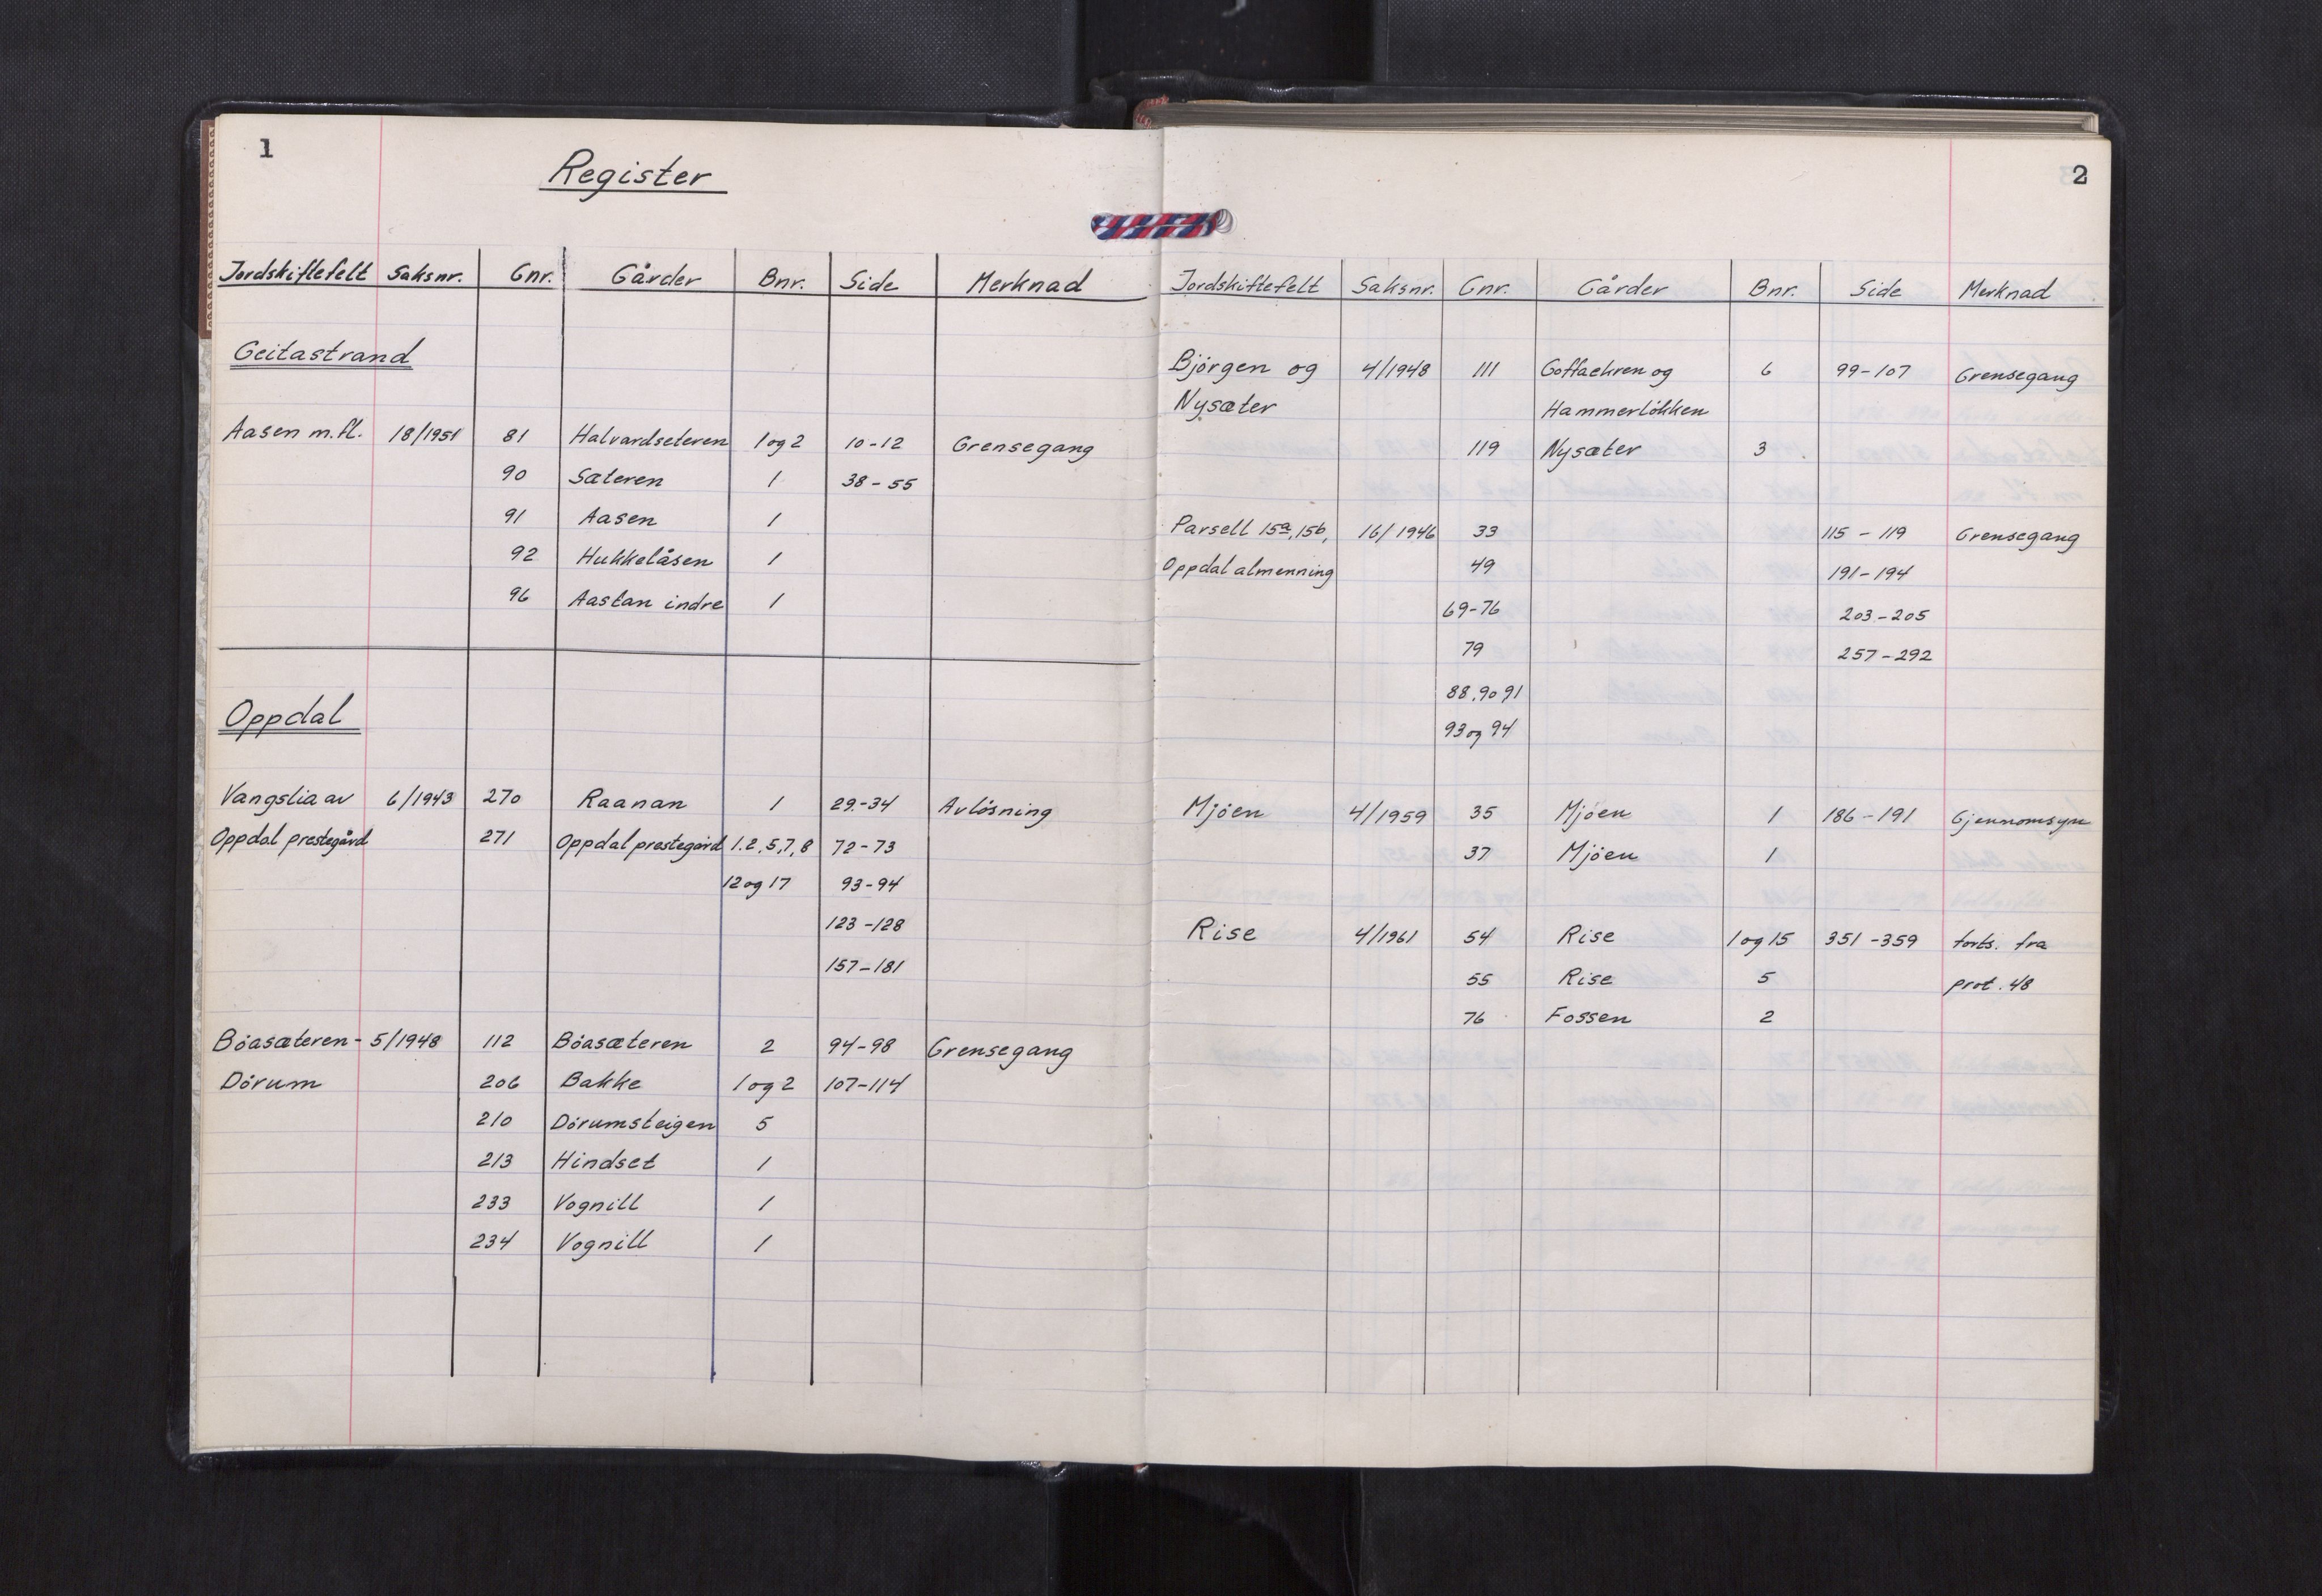 1
Register
Jordskiftefelt Saksnr. Gnr. Gårder Bnr. Side Merknad
Geitastrand
Aasen m.fl. 18/1951 81 Halvardseteren 1 og 2 10-12 Grensegang
90 Sæteren 1 38-55
91 Aasen 1
92 Hukkelåsen 1
96 Aastan indre 1
Oppdal
Vangslia av 6/1943 270 Raanan 1 29-34 Avlösning
Oppdal prestegård 271 Oppdal prestegård 1.2,5,7,8 72-73
12 og 17 93-94
123-128
157-181
Böasæteren- 5/1948 112 Böasæteren 2 94-98 Grensegang
Dörum 206 Bakke 1 og 2 107-114
210 Dörumsteigen 5
213 Hindset 1
233 Vognill 1
234 Vognill 1
2
Jordskiftefelt Saksnr. Gnr. Gårder Bnr. Side Merknad
Björgen og 4/1948 111 og 6 99-107 Grensegang
Nysæter Hammerlökken
119 Nysæter 3
Parsell 15a, 15b, 16/1946 33 115-119 Grensegang
Oppdal almenning 49 191-194
69-76 203-205
79 257-292
88,90 91
93 og 94
Mjöen 4/1959 35 Mjöen 1 186-191 Gjennomsyn
37 Mjöen 1
Rise 4/1961 54 Rise 1 og 15 351-359 forts. fra
55 Rise 5 prot. 48
76 Fossen 2